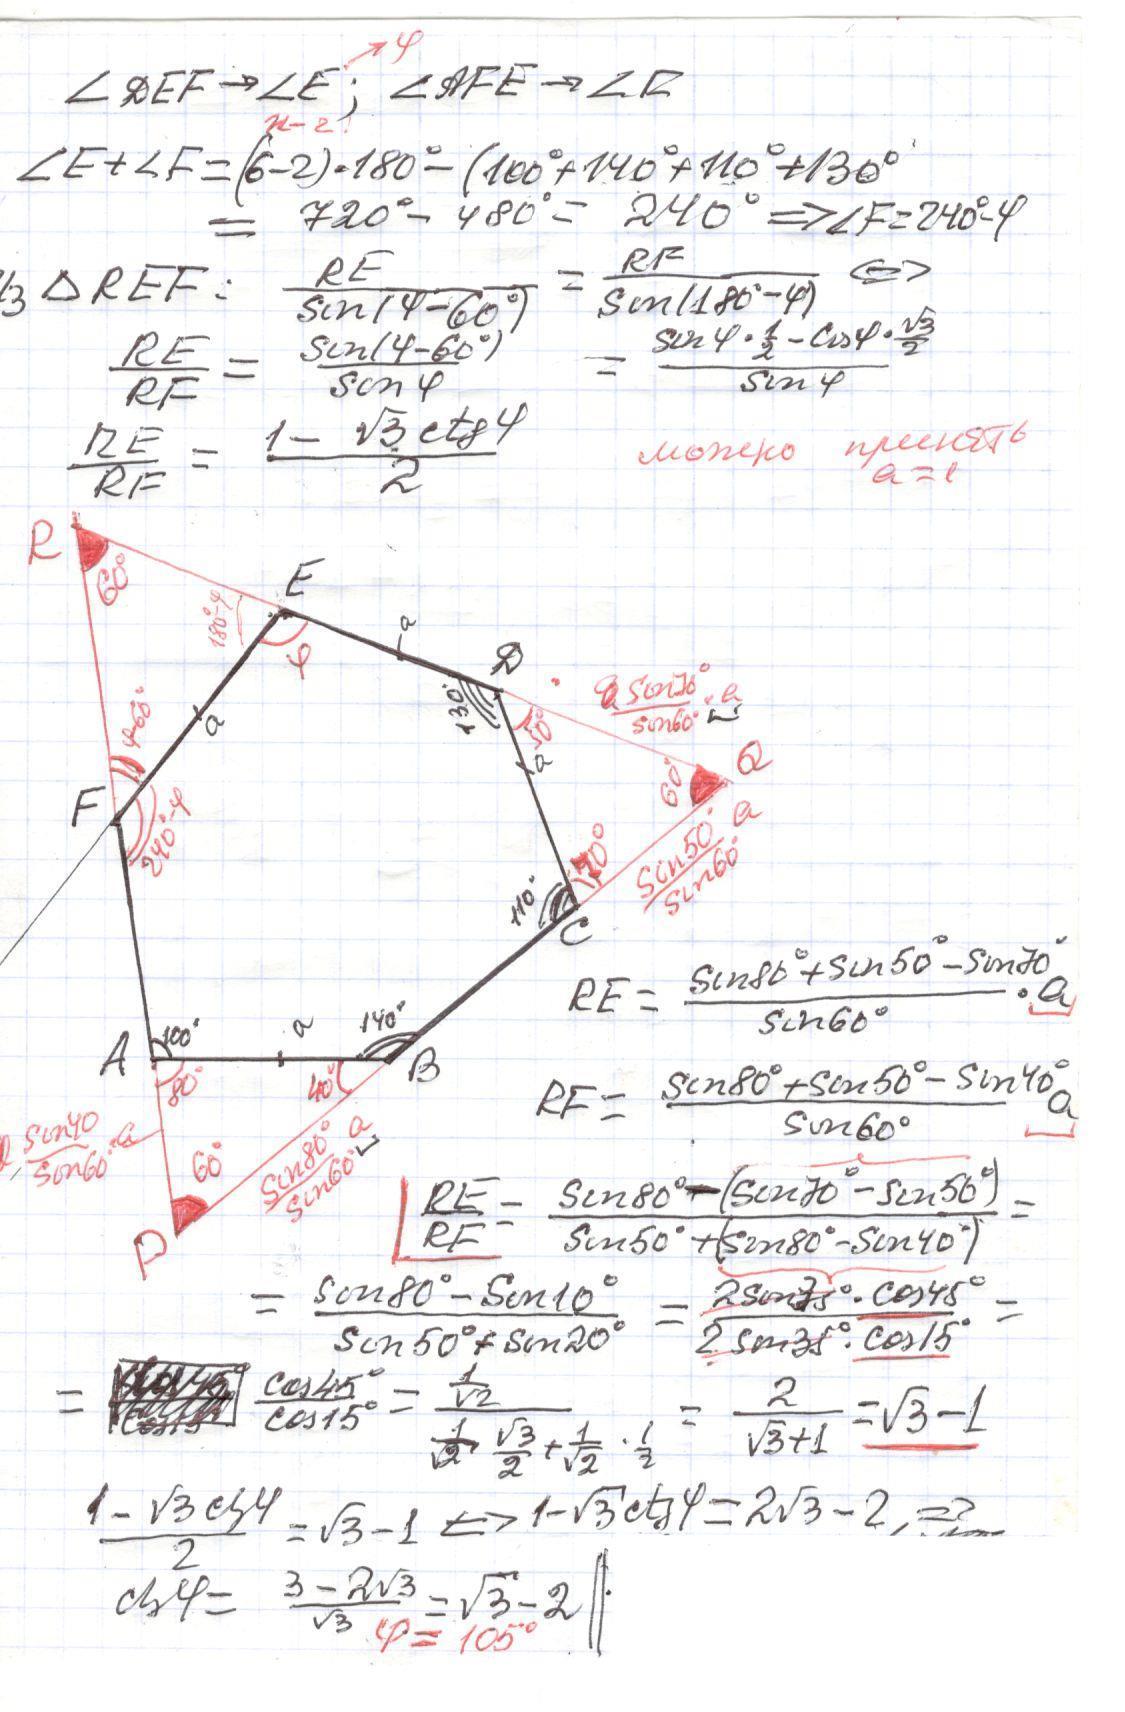 ∠DEF → ∠E; ∠AFE → ∠F
φ
n-2
∠E+∠F=(6-2)·180°-(100°+140°+110°+130°
= 720°- 480°= 240° => ∠F=240°-φ
Из △REF: RE/sin(φ-60°) = RF/sin(180°-φ) <=>
RE/RF = sin(φ-60°)/sinφ = (sinφ·1/2-cosφ·√3/2)/sinφ
RE/RF = (1-√3ctgφ)/2
можно принять
a=1
R
60°
E
180°-φ
φ
a
D
130°
50°
sin70°/sin60°·a
a
φ-60°
a
60°
Q
F
240°-φ
70°
sin50°/sin60° a
110°
C
RE = (sin80°+sin50°-sin70°)/sin60° · a
A
100°
a
140°
B
80°
40°
RF = (sin80°+sin50°-sin40°)/sin60° a
sin40/sin60°·a
60°
sin80°/sin60° a
P
RE/RF = (sin80°-(sin70°-sin50°))/(sin50°+(sin80°-sin40°)) =
= (sin80°-sin10°)/(sin50°+sin20°) = (2sin35°·cos45°)/(2sin35°·cos15°) =
= cos45°/cos15° = (1/√2)/(1/√2·√3/2+1/√2·1/2) = 2/(√3+1) = √3-1
(1-√3ctgφ)/2 = √3-1 <=> 1-√3ctgφ = 2√3-2, =>
ctgφ = (3-2√3)/√3 = √3-2
φ = 105°